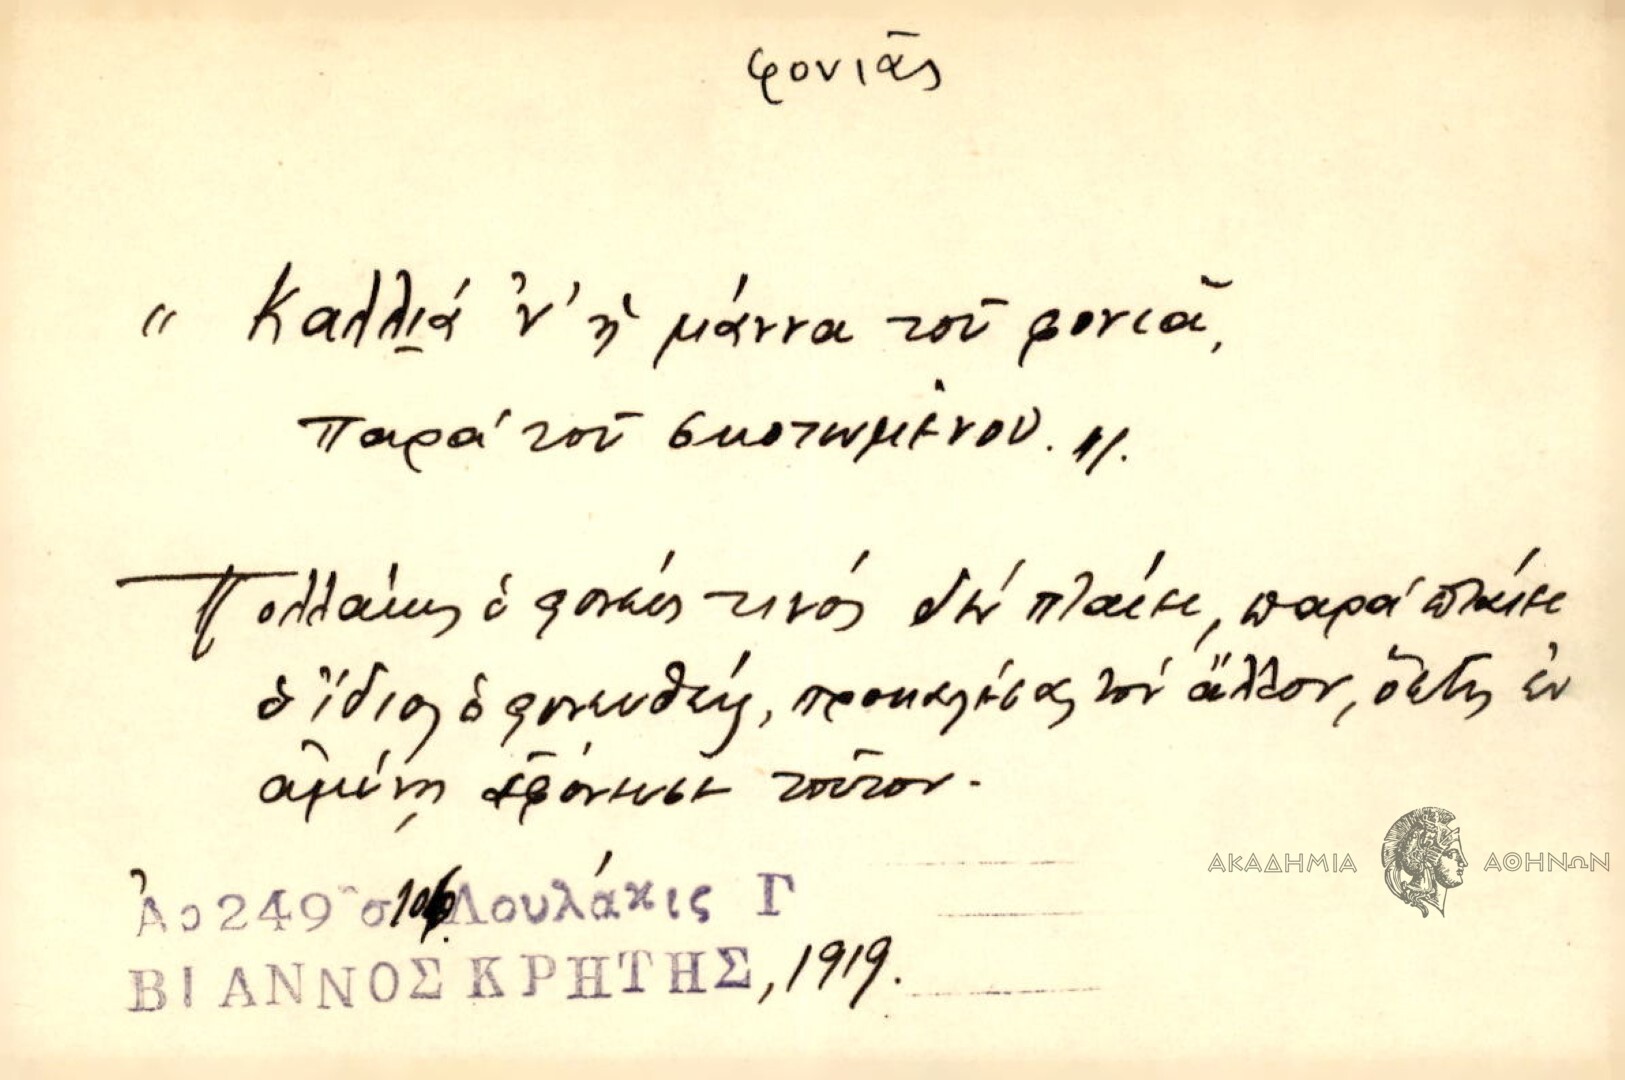 φονιᾶς
" Καλλιά 'ν' ἡ μάννα τοῦ φονιᾶ,
παρά τοῦ σκοτωμένου. ".
Πολλάκις ὁ φονεύς τινός δέν πταίει, παρά πταίει
ὁ ἴδιος ὁ φονευθείς, προκαλέσας τόν ἄλλον, ὅστις ἐν
ἀμύνῃ ἐφόνευσε τοῦτον.
Ἀρ 249 σ 106 Λουλάκις Γ
ΒΙΑΝΝΟΣ ΚΡΗΤΗΣ, 1919.
ΑΚΑΔΗΜΙΑ ΑΘΗΝΩΝ